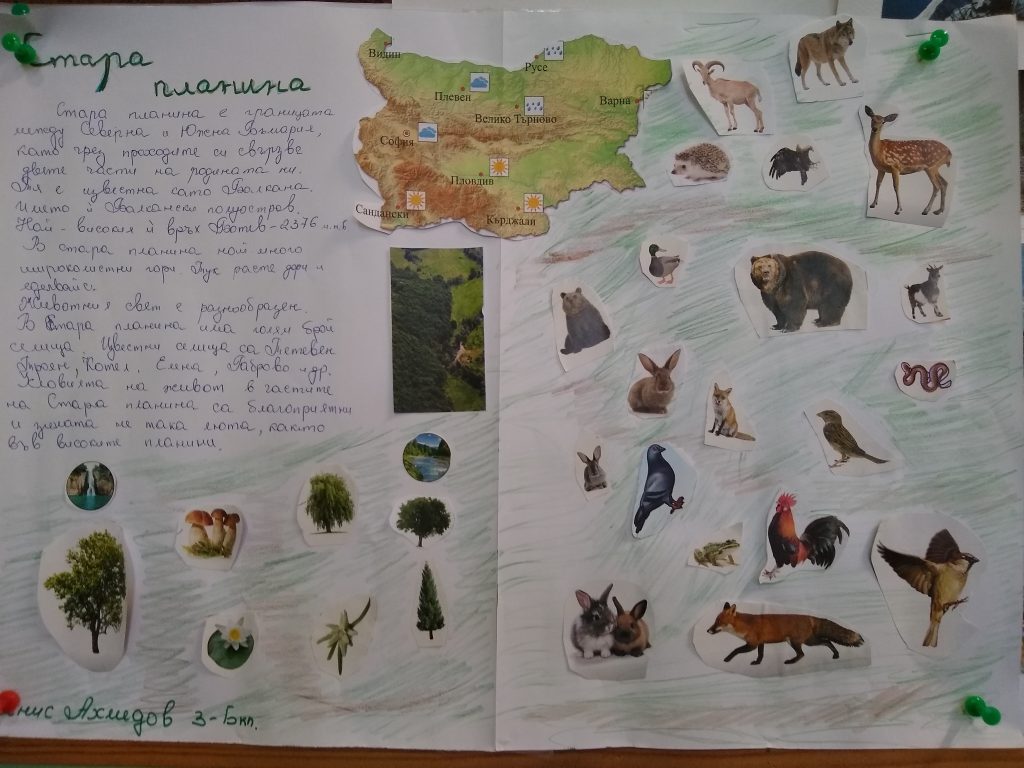 Стара
планина
Стара планина е границата
между Северна и Южна България,
като чрез проходите си свързва
двете части на родината ни.
Тя е известна като Балкана.
Името ѝ Балкански полуостров.
Най-високия ѝ връх Ботев-2376 м.н.в
В стара планина най много
широколистни гори. Тук расте дори и
еделвайс.
Животния свят е разнообразен.
В Стара планина има голям брой
селища. Известни селища са Тетевен
Троян, Котел, Елена, Габрово и др.
Условията на живот в частите
на Стара планина са благоприятни
и зимата не така люта, както
във високите планини.
Видин
Русе
Плевен
Варна
Велико Търново
София
Пловдив
Сандански
Кърджали
Ахмедов 3-Бкл.